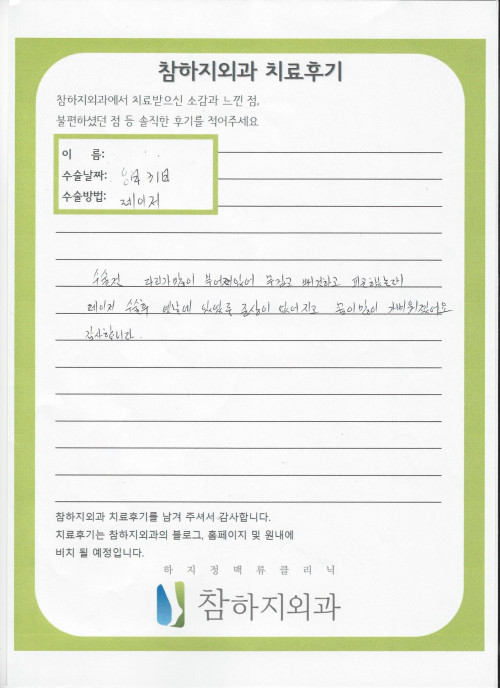 참하지외과 치료후기
참하지외과에서 치료받으신 소감과 느낀 점,
불편하셨던 점 등 솔직한 후기를 적어주세요
이 름:
수술날짜: 31일
수술방법: 레이저
수술전 다리가 많이 부어있어 무겁고 뻐근하고 피곤했는데
레이저 수술후 옛날에 있었던 증상이 없어지고 몸이 많이 가벼워졌어요
감사합니다.
참하지외과 치료후기를 남겨 주셔서 감사합니다.
치료후기는 참하지외과의 블로그, 홈페이지 및 원내에
비치 될 예정입니다.
하지정맥류클리닉
참하지외과